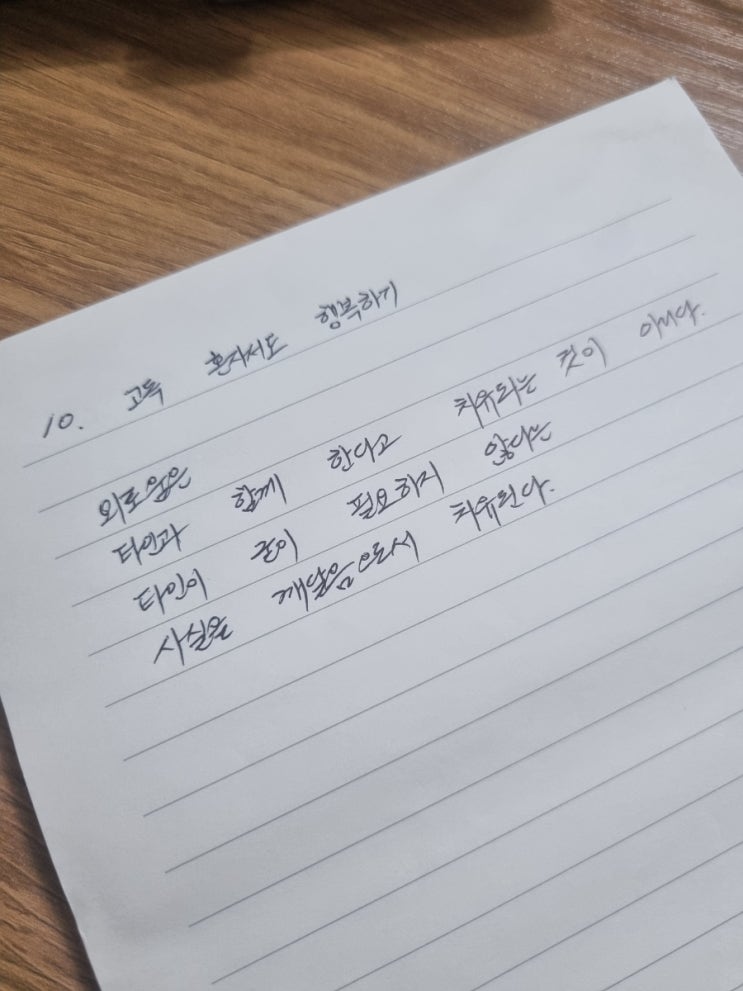 10. 고독 혼자서도 행복하기
외로움은
타인과 함께 한다고 치유되는 것이 아니다.
타인이 굳이 필요하지 않다는
사실을 깨달음으로서 치유된다.